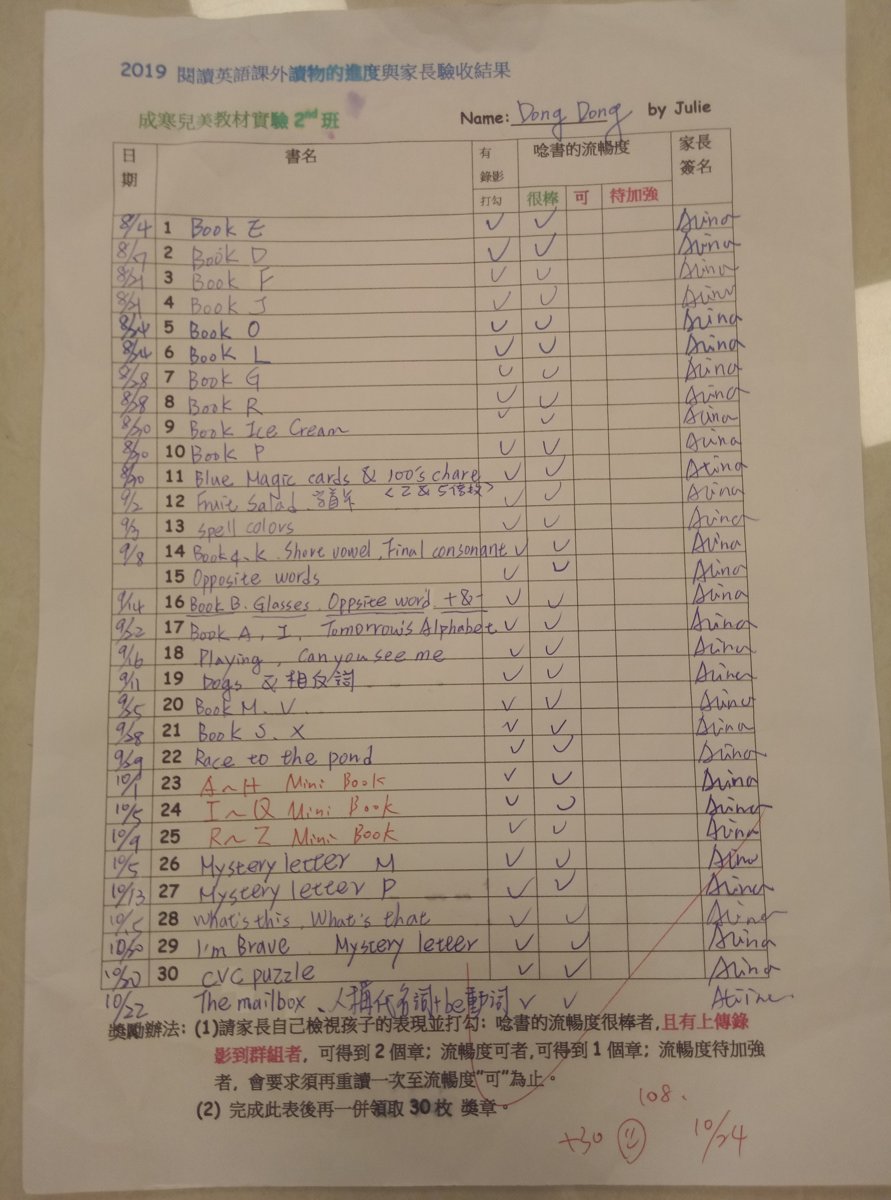 2019 閱讀英語課外讀物的進度與家長驗收結果
成寒兒美教材實驗 2nd 班 Name: Dong Dong by Julie
日期 書名 有錄影打勾 唸書的流暢度 家長簽名
很棒 可 待加強
8/4 1 Book E ✓ ✓ Alina
8/7 2 Book D ✓ ✓ Alina
8/21 3 Book F ✓ ✓ Alina
8/21 4 Book J ✓ ✓ Alina
8/24 5 Book O ✓ ✓ Alina
8/24 6 Book L ✓ ✓ Alina
8/28 7 Book G ✓ ✓ Alina
8/28 8 Book R ✓ ✓ Alina
8/30 9 Book Ice Cream ✓ ✓ Alina
8/30 10 Book P ✓ ✓ Alina
8/30 11 Blue Magic cards & 100's chare ✓ ✓ Alina
<2 & 5倍数>
9/2 12 Fruit Salad ✓ ✓ Alina
9/3 13 Spell colors ✓ ✓ Alina
9/8 14 Book 4. K. Shore vowel, Final consonant ✓ ✓ Alina
15 Opposite words ✓ ✓ Alina
9/14 16 Book B. Glasses. Oppsite word. +&- ✓ ✓ Alina
9/22 17 Book A, I, Tomorrow's Alphabet ✓ ✓ Alina
9/16 18 Playing, Can you see me ✓ ✓ Alina
9/11 19 Dogs & 相反詞 ✓ ✓ Alina
9/25 20 Book M. V. ✓ ✓ Alina
9/28 21 Book S. X ✓ ✓ Alina
9/29 22 Race to the pond ✓ ✓ Alina
10/1 23 A~H Mini Book ✓ ✓ Alina
10/5 24 I~Q Mini Book ✓ ✓ Alina
10/9 25 R~Z Mini Book ✓ ✓ Alina
10/5 26 Mystery letter M ✓ ✓ Alina
10/13 27 Mystery letter P ✓ ✓ Alina
10/15 28 What's this, What's that ✓ ✓ Alina
10/20 29 I'm Brave Mystery letter ✓ ✓ Alina
10/20 30 CVC puzzle ✓ ✓ Alina
10/22 The mailbox、人稱代名詞+be動詞 ✓ ✓ Alina
獎勵辦法: (1)請家長自己檢視孩子的表現並打勾: 唸書的流暢度很棒者,且有上傳錄
影到群組者, 可得到 2 個章; 流暢度可者,可得到 1 個章; 流暢度待加強
者, 會要求須再重讀一次至流暢度"可"為止。
(2) 完成此表後再一併領取 30枚 獎章。
108.
+30 10/24